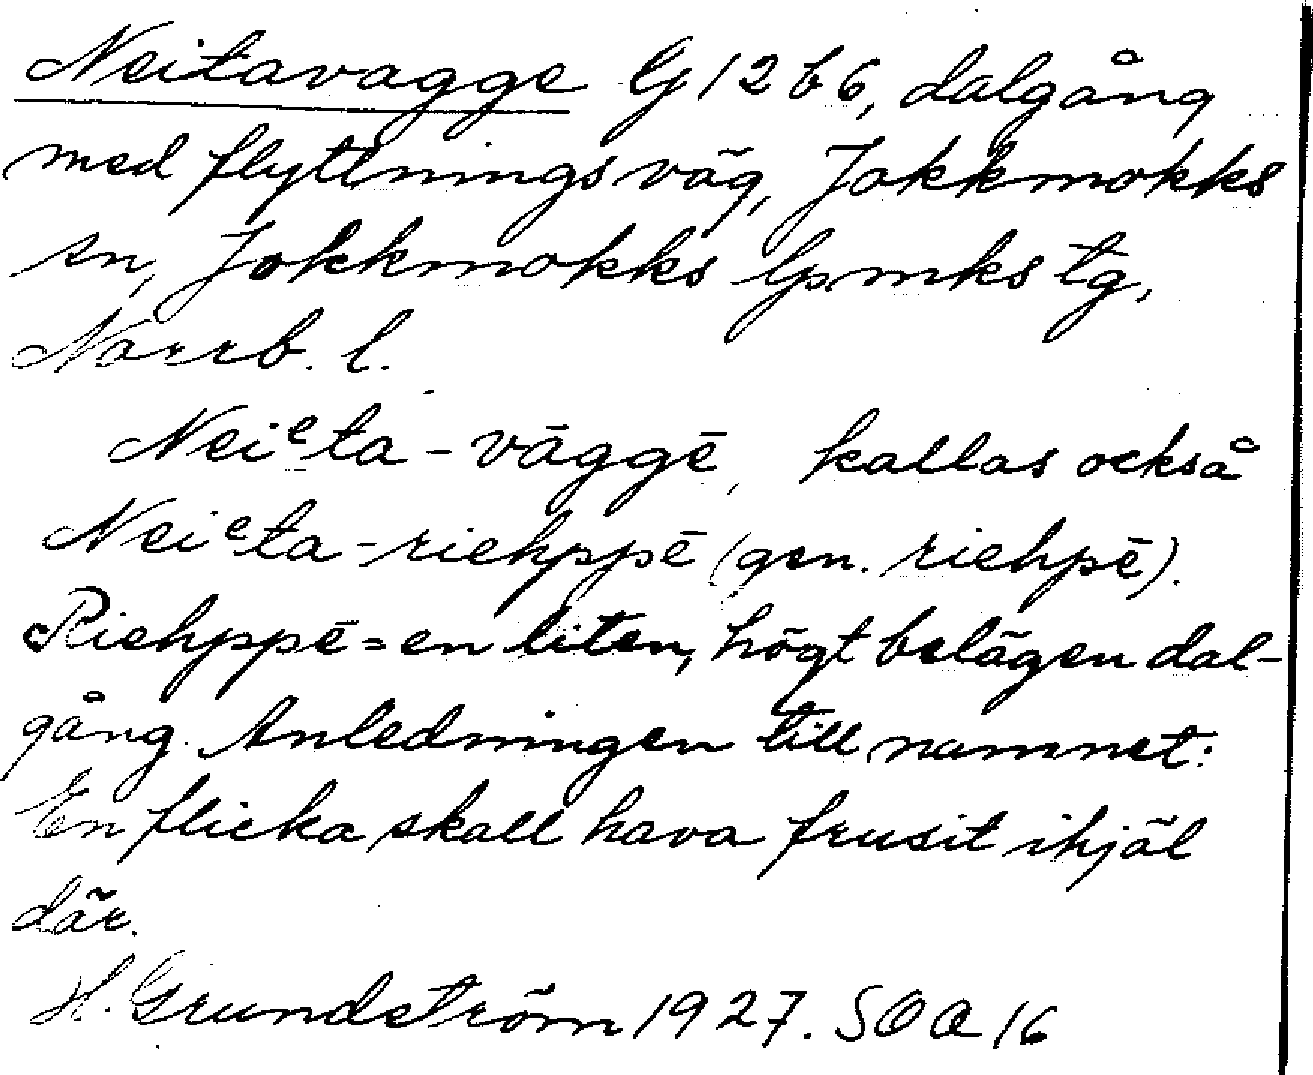 Neitavagge G 12 b 6, dalgång
med flyttningsväg, Jokkmokks
sn, Jokkmokks lpmks tg,
Norrb. l.
Neiᵉta-vāggē, kallas också
Neiᵉta-riehppē (gen. riehpē).
Riehppē = en liten, högt belägen dal-
gång. Anledningen till namnet:
En flicka skall hava frusit ihjäl
där.
H. Grundström 1927. SOA 16